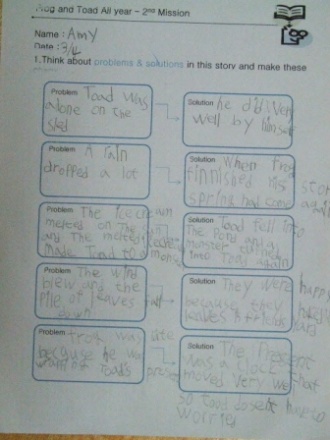 Frog and Toad All year – 2nd Mission
Name : Amy
Date : 3/4
1. Think about problems & solutions in this story and make these
Problem Toad was
alone on the
sled
Solution he did very
well by himself
Problem A rain
dropped a lot
Solution when frog
finnished his story
spring had come again
Problem The icecream
melted on the sun
and The melted icecream
made Toad to a monster
Solution Toad fell into
The pond and a
monster turned
into Toad again
Problem The wind
blew and the
pile of leaves fall
down
Solution They were happy
because they
leaves
Problem frog was late
because he was
wrapping Toad's present
Solution The Present
was a clock that
moved very well
so toad dosent have to
worrie